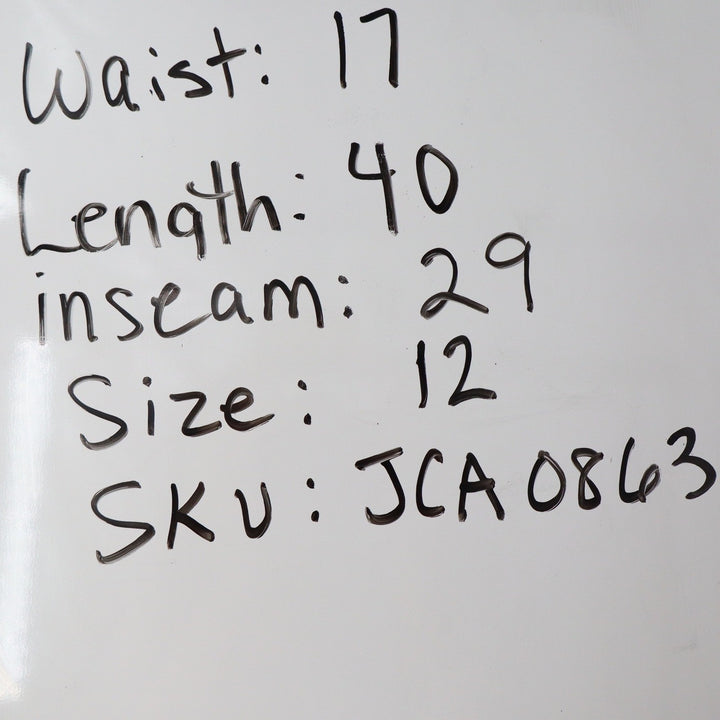 Waist: 17
Length: 40
inseam: 29
Size: 12
SKU: JCA0863